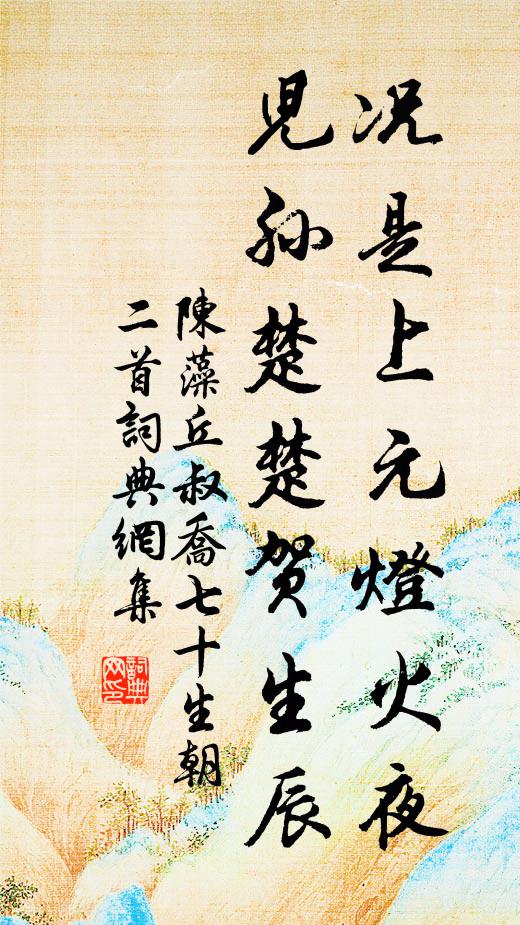 况是上元燈火夜
児孫楚楚賀生辰
陳藻丘叔喬七十生朝
二首詞典網集
詞典
网印